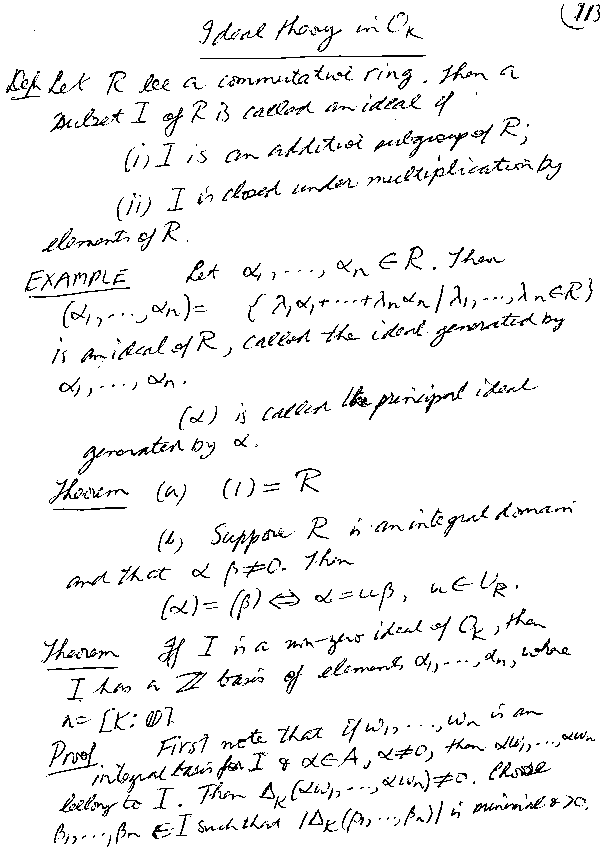 113
Ideal theory in O_K
Def. Let R be a commutative ring. Then a
subset I of R is called an ideal if
(i) I is an additive subgroup of R;
(ii) I is closed under multiplication by
elements of R.
EXAMPLE Let α₁,...,αₙ ∈ R. Then
(α₁,...,αₙ) = {λ₁α₁+...+λₙαₙ | λ₁,...,λₙ ∈ R}
is an ideal of R, called the ideal generated by
α₁,...,αₙ.
(α) is called the principal ideal
generated by α.
Theorem (a) (1) = R
(b) Suppose R is an integral domain
and that αβ≠0. Then
(α) = (β) ⇔ α = uβ, u ∈ U_R.
Theorem If I is a non-zero ideal of O_K, then
I has a ℤ basis of elements α₁,...,αₙ, where
n = [K:ℚ]
Proof. First note that if ω₁,...,ωₙ is an
integral basis for I & α∈A, α≠0, then αω₁,...,αωₙ
belong to I. Then Δ_K(αω₁,...,αωₙ)≠0. Choose
β₁,...,βₙ ∈ I such that |Δ_K(β₁,...,βₙ)| is minimal & >0.